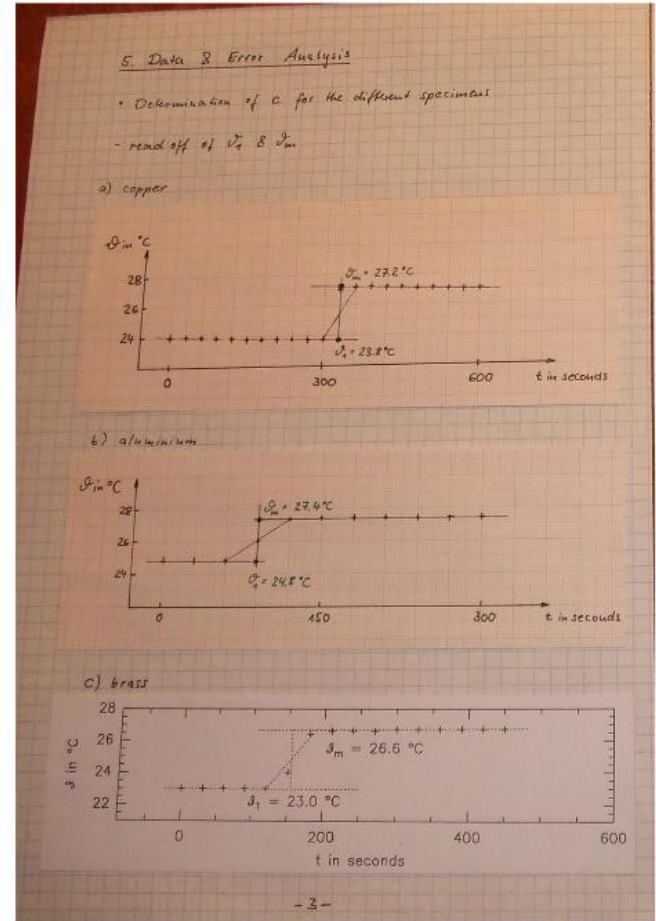 5. Data & Error Analysis
• Determination of c for the different specimens
- read off of ϑ₁ & ϑₘ
a) copper
ϑ in °C
28
26
24
ϑₘ = 27.2 °C
ϑ₁ = 23.8 °C
0 300 600 t in seconds
b) aluminium
ϑ in °C
28
26
24
ϑₘ = 27.4 °C
ϑ₁ = 24.8 °C
0 150 300 t in seconds
c) brass
ϑ in °C
28
26
24
22
ϑₘ = 26.6 °C
ϑ₁ = 23.0 °C
0 200 400 600
t in seconds
- 3 -